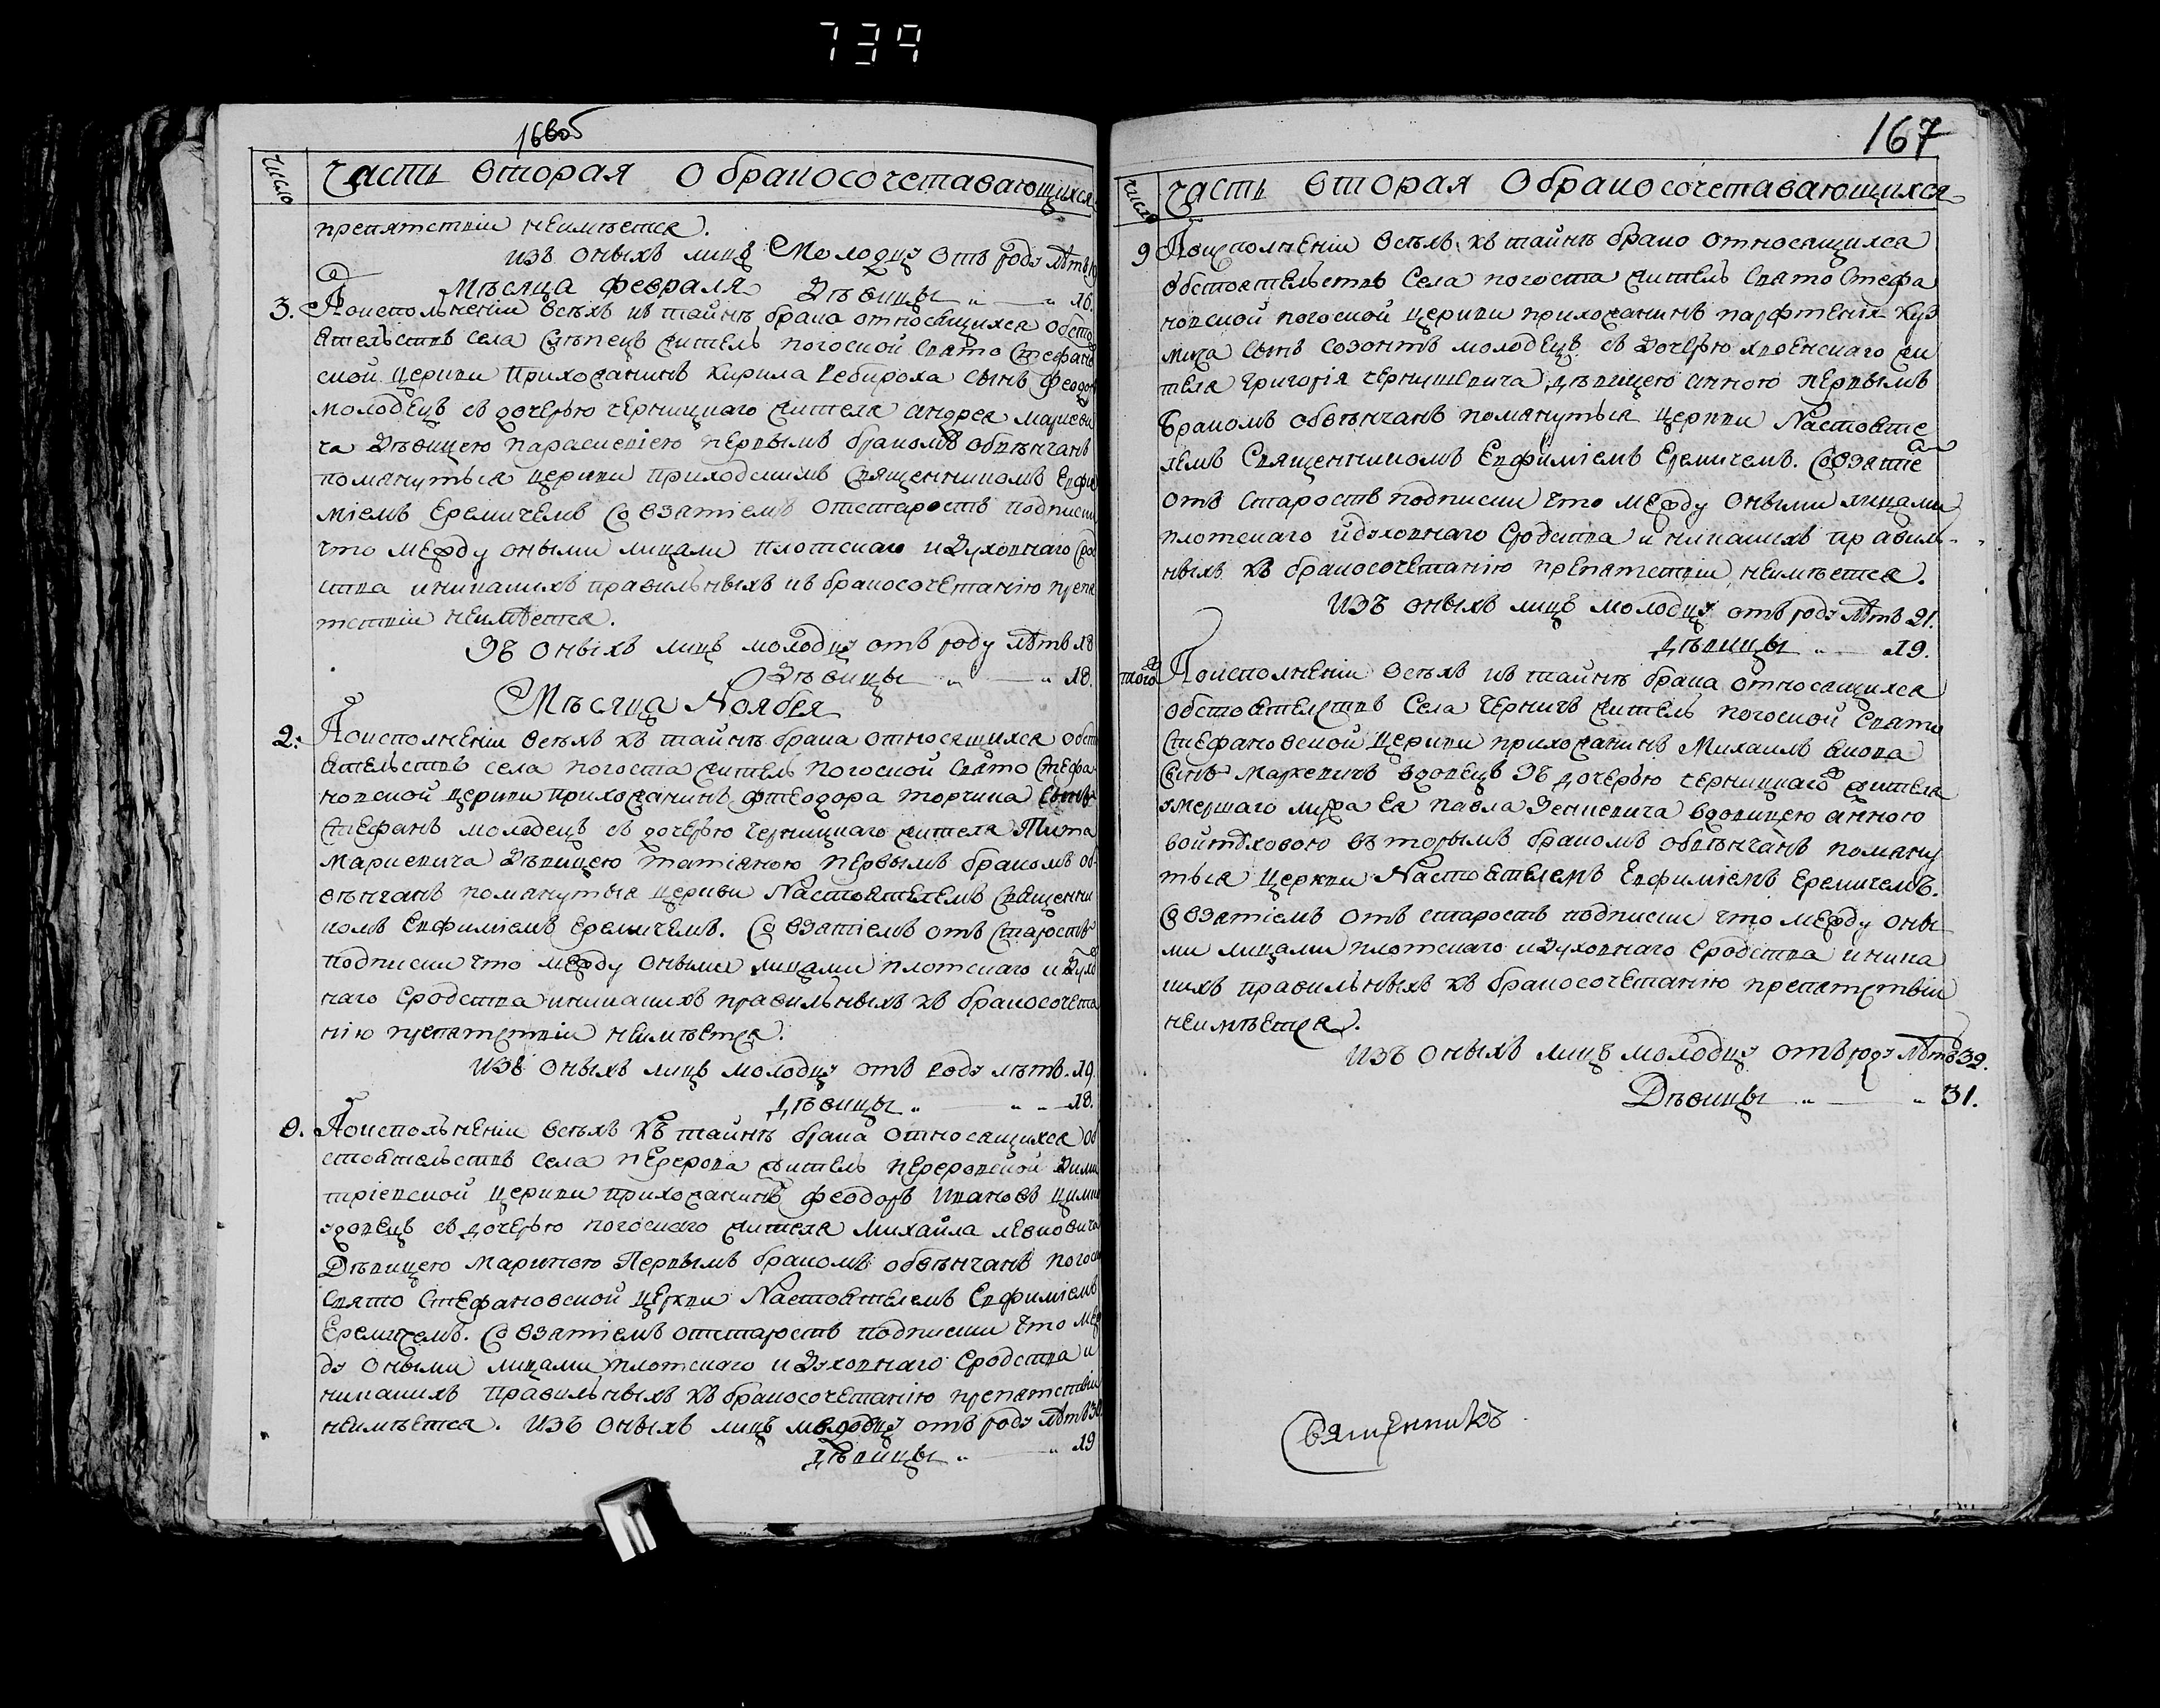 739
166об
Число
Часть вторая О бракосочетавающихся
препятствіи неимѣется.
изъ оныхъ лицъ Молодцу отъ роду лѣтъ
Мѣсяца Февраля Дѣвицы „ — „ 16.
3. Поисполненіи всѣхъ къ тайнѣ брака относящихся обсто
ятельствъ села житель погоской Свято Стефанов
ской церкви Прихожанинъ Кирила сынъ Феодоръ
молодецъ съ дочерью черницкаго жителя Андрея Маркеви
ча Дѣвицею Параскевіею первымъ бракомъ обвѣнчанъ
помянутыя церкви приходскимъ Священникомъ Евфи
міемъ Еремичемъ Со взятіемъ отстаростъ подписки
что между оными лицами плотскаго и Духовнаго Срод
ства и никакихъ правильныхъ къ бракосочетанію препя
тствіи неимѣется.
Зъ оныхъ лицъ молодцу отъ роду лѣтъ 18
Дѣвицы „ — „ 18.
Мѣсяца Ноября
2. Поисполненіи всѣхъ къ тайнѣ брака относящихся обсто
ятельствъ села погоста житель погоской Свято Стефа
новской церкви прихожанинъ Фтеодора Торчика сынъ
Стефанъ молодецъ съ дочерью Черницкаго жителя Тита
Маркевича Дѣвицею Татіяною первымъ бракомъ об
вѣнчанъ помянутыя церкви Настоятелемъ Священни
комъ Евфиміемъ Еремичемъ. Со взятіемъ отъ Старостъ
подписки что между оными лицами плотскаго и Духов
наго Сродства и никакихъ правильныхъ къ бракосочета
нію препятствіи неимѣется.
Изъ оныхъ лицъ молодцу отъ роду лѣтъ. 19.
Дѣвицы „ — „ 18.
9. Поисполненіи всѣхъ къ тайнѣ брака относящихся об
стоятельствъ села Перерова житель Переровской Дими
тріевской церкви прихожанинъ Феодоръ Ивановъ
вдовецъ съ дочерью погоскаго жителя Михайла Левковича
Дѣвицею Мариною Первымъ бракомъ обвѣнчанъ погоской
Свято Стефановской Церкви Настоятелемъ Евфиміемъ
Еремичемъ. Со взятіемъ отстаростъ подписки что меж
ду оными лицами плотскаго и Духовнаго Сродства и
никакихъ правильныхъ къ бракосочетанію препятствіи
неимѣется. Изъ оныхъ лицъ молодцу отъ роду лѣтъ 30
Дѣвицы „ — „ 19
167
Число
Часть вторая О бракосочетавающихся
9 Поисполненіи всѣхъ къ тайнѣ брако относящихся
обстоятельствъ Села погоста житель Свято Стефа
новской погоской церкви прихожанинъ Парфтенія Куз
мича сынъ Созонтъ молодецъ съ дочерью хвоенскаго жи
теля Григорія Чернушевича дѣвицею Анною первымъ
бракомъ обвѣнчанъ помянутыя церкви Настояте
лемъ Священникомъ Евфиміемъ Еремичемъ. Совзятіе
отъ старостъ подписки что между оными лицами
плотскаго и духовнаго Сродства и никакихъ правиль
ныхъ къ бракосочетанію препятствіи неимѣется.
Изъ оныхъ лицъ молодцу отъ роду лѣтъ 21.
Дѣвицы „ — 19.
того Поисполненіи всѣхъ къ тайнѣ брака относящихся
обстоятелствъ Села Черничъ житель погоской Свято
Стефановской церкви прихожанинъ Михаилъ
сынъ Маркевичъ вдовецъ Зъ дочерью черницкаго жителя
умершаго мужа ея Павла вдовицею Анною
вторымъ бракомъ обвѣнчанъ помяну
тыя Церкви Настоятелемъ Евфиміемъ Еремичемъ.
Со взятіемъ отъ старостъ подписки что между оны
ми лицами плотскаго и Духовнаго Сродства и ника
кихъ правильныхъ къ бракосочетанію препятствіи
неимѣется.
Изъ оныхъ лицъ молодцу отъ роду лѣтъ 32.
Дѣвицы „ — „ 31.
Священникъ